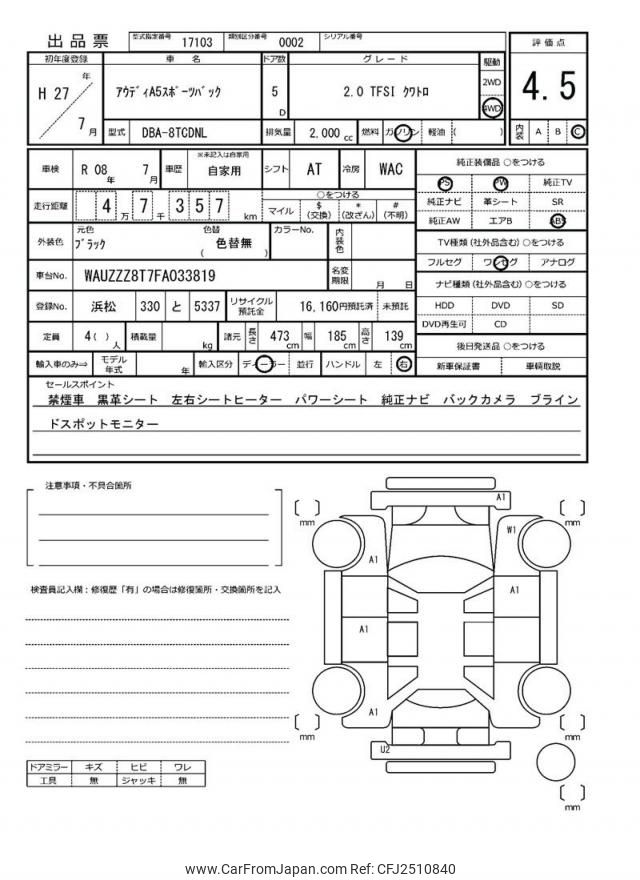 出品票
型式指定番号 17103 類別区分番号 0002 シリアル番号
初年度登録 車名 ドア数 グレード 駆動 評価点
H 27 年 7 月 ｱｳﾃﾞｨA5ｽﾎﾟｰﾂﾊﾞｯｸ 5 D 2.0 TFSI ｸﾜﾄﾛ 2WD 4WD 4.5
型式 DBA-8TCDNL 排気量 2,000 cc 燃料 ガソリン 軽油 ( ) 内装 A B C
車検 R 08 年 7 月 車歴 ※未記入は自家用 自家用 シフト AT 冷房 WAC
走行距離 4 万 7 千 3 5 7 km ○をつける マイル $ (交換) * (改ざん) # (不明)
外装色 元色 ﾌﾞﾗｯｸ 色替 ( 色替無 ) カラーNo. 内装色
車台No. WAUZZZ8T7FA033819 名変期限 月 日
登録No. 浜松 330 と 5337 リサイクル預託金 16,160円預託済 未預託
定員 4( ) 人 積載量 kg 諸元 長さ 473 cm 幅 185 cm 高さ 139 cm
輸入車のみ⇒ モデル年式 年 輸入区分 ディーラー 並行 ハンドル 左 右
純正装備品 ○をつける
PS PW 純正TV
純正ナビ 革シート SR
純正AW エアB ABS
TV種類 (社外品含む) ○をつける
フルセグ ワンセグ アナログ
ナビ種類 (社外品含む) ○をつける
HDD DVD SD
DVD再生可 CD
後日発送品 ○をつける
新車保証書 車輌取説
セールスポイント
禁煙車 黒革シート 左右シートヒーター パワーシート 純正ナビ バックカメラ ブライン
ドスポットモニター
注意事項・不具合箇所
検査員記入欄：修復歴「有」の場合は修復箇所・交換箇所を記入
ドアミラー キズ ヒビ ワレ
工具 無 ジャッキ 無
A1
[ ] mm [ ] mm
W1
A1
A1
A1
A1
[ ] mm [ ] mm
U2
[ ] mm
www.CarFromJapan.com Ref: CFJ2510840